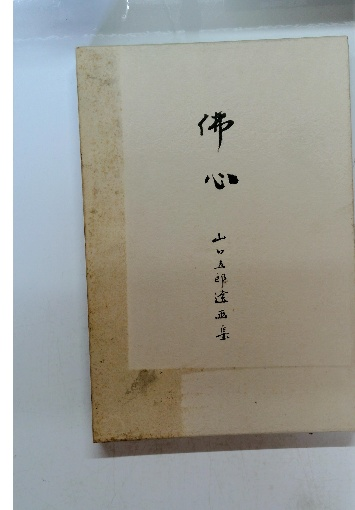 佛心
山口五郎遺画集